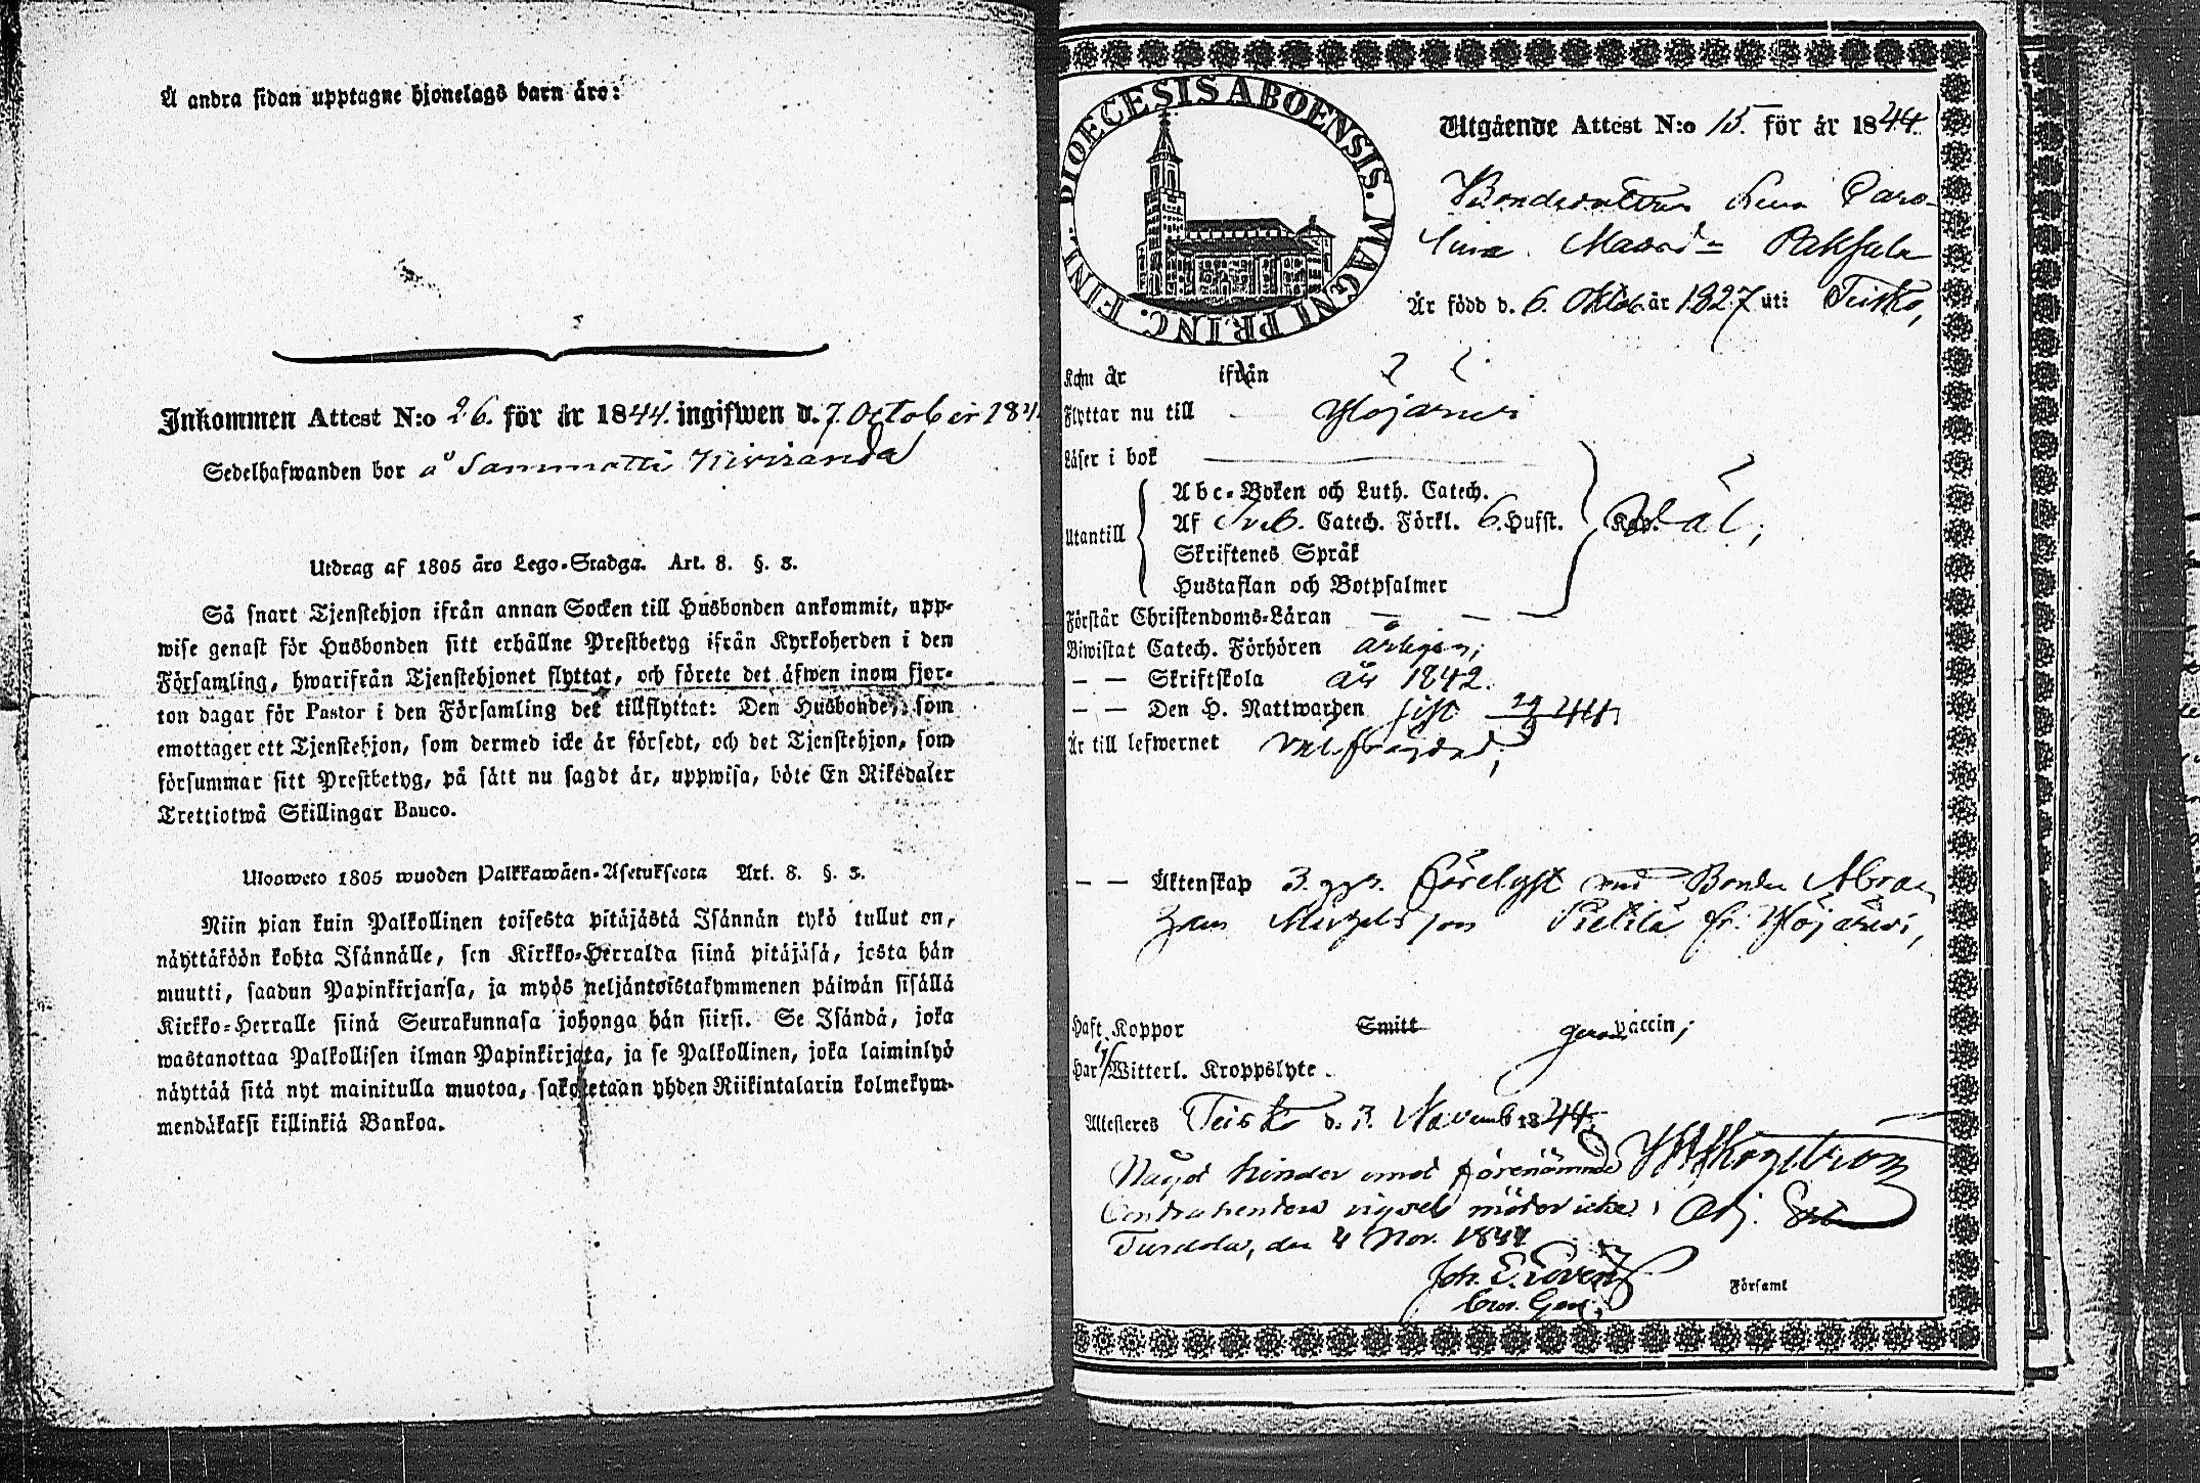 Å andra sidan upptagne hjonelags barn äro:
Inkommen Attest N:o 26. för år 1844. ingifwen d. 7. October 184
Sedelhafwanden bor å Sammatti
Utdrag af 1805 års Lego-Stadga. Art. 8. §. 3.
Så snart Tjenstehjon ifrån annan Socken till Husbonden ankommit, upp-
wise genast för Husbonden sitt erhållne Prestbetyg ifrån Kyrkoherden i den
Församling, hwarifrån Tjenstehjonet flyttat, och förete det äfwen inom fjor-
ton dagar för Pastor i den Församling det tillflyttat: Den Husbonde, som
emottager ett Tjenstehjon, som dermed icke är försedt, och det Tjenstehjon, som
försummar sitt Prestbetyg, på sätt nu sagdt är, uppwisa, böte En Riksdaler
Trettiotwå Skillingar Banco.
Ulosweto 1805 wuoden Palkkawäen-Asetuksesta Art. 8. §. 3.
Niin pian kuin Palkollinen toisesta pitäjästä Isännän tykö tullut on,
näyttäköön kohta Isännälle, sen Kirkko-Herralda siinä pitäjäsä, josta hän
muutti, saadun Papinkirjansa, ja myös neljäntoistakymmenen päiwän sisällä
Kirkko-Herralle siinä Seurakunnasa johonga hän siirsi. Se Isändä, joka
wastanottaa Palkollisen ilman Papinkirjata, ja se Palkollinen, joka laiminlyö
näyttää sitä nyt mainitulla muotoa, sakotetaan yhden Riikintalarin kolmekym-
mendäkaksi killinkiä Bankoa.
DIOECESIS ABOENSIS. MAGNI PRINC. FINL.
Utgående Attest N:o 15. för år 1844.
Bondedottren Lena Caro-
lina Paksula
Är född d. 6. Oktob. år 1827 uti Teisko,
Kom år ifrån
Flyttar nu till Ylöjärwi
Läser i bok
Utantill
Abc-Boken och Luth. Catech.
Af Sveb. Catech. Förkl. 6. Hufst. Kap. wäl;
Skriftenes Språk
Hustaflan och Botpsalmer
Förstår Christendoms-Läran
Biwistat Catech. Förhören årligen;
— — Skriftskola år 1842.
— — Den H. Nattwarden sist
Är till lefwernet välfrägdad,
— — Äktenskap 3. ggr. förelyst med Bonden Abra-
ham Pietilä fr. Ylöjärwi,
Haft Koppor Smitt genom vaccin;
Har Witterl. Kroppslyte.
Attesteras Teisko d. 3. Novemb 1844.
Något hinder emot förenämnde
Contrahenters vigsel möter icke.
den 4 Nov. 1844
Joh. E.
Församl